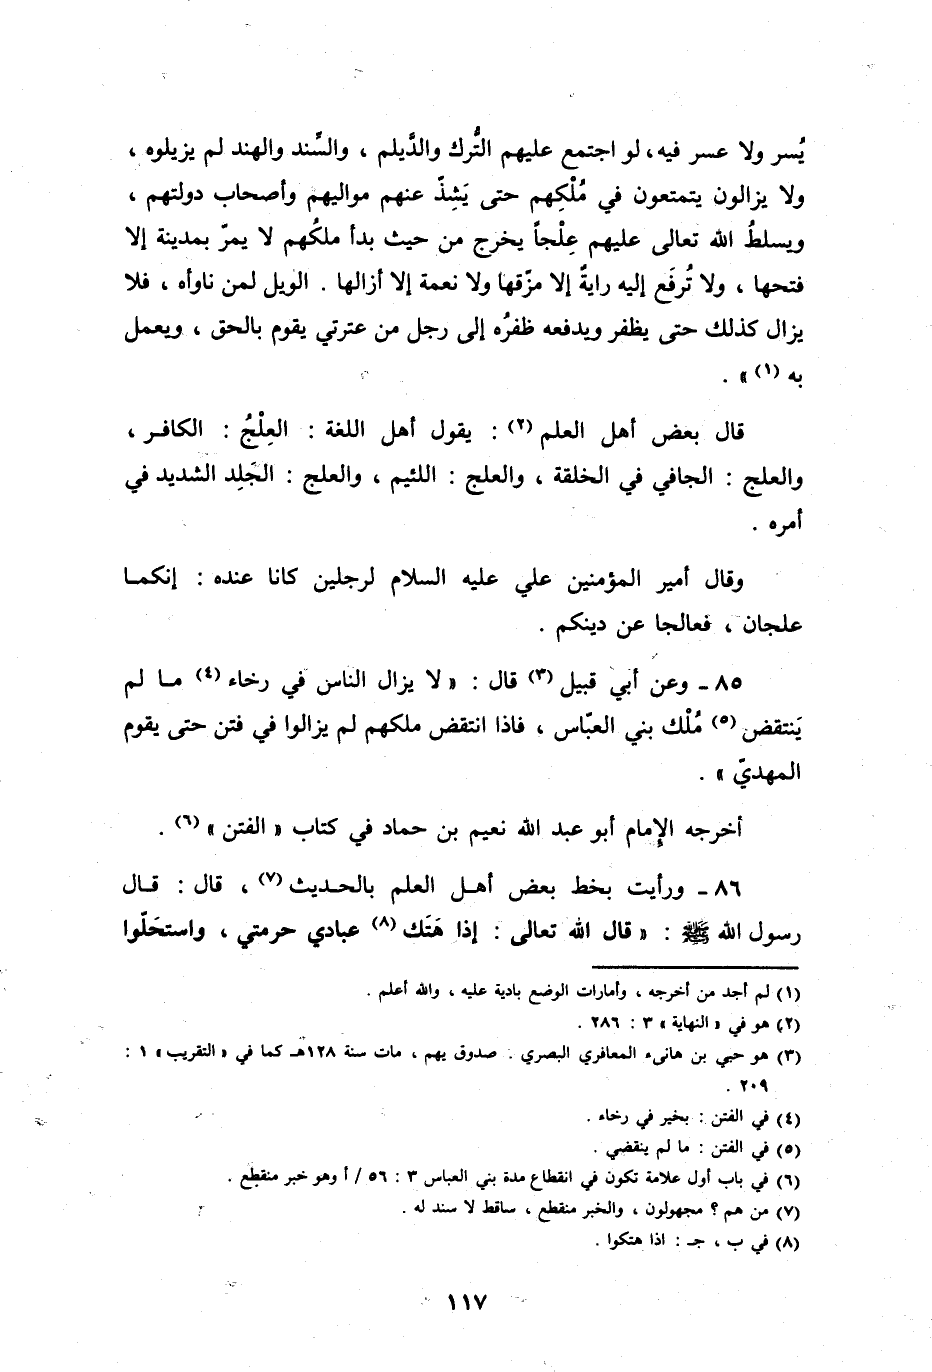 يُسر ولا عسر فيه، لو اجتمع عليهم التُّرك والدَّيلم ، والسِّند والهند لم يزيلوه ،
ولا يزالون يتمتعون في مُلْكِهم حتى يَشِذّ عنهم مواليهم وأصحاب دولتهم ،
ويسلطُ الله تعالى عليهم عِلْجاً يخرج من حيث بدأ ملكُهم لا يمرّ بمدينة إلا
فتحها ، ولا تُرفَع إليه رايةٌ إلا مزّقها ولا نعمة إلا أزالها . الويل لمن ناوأه ، فلا
يزال كذلك حتى يظفر ويدفعه ظفرُه إلى رجل من عترتي يقوم بالحق ، ويعمل
به (١) » .
قال بعض أهل العلم (٢) : يقول أهل اللغة : العِلْجُ : الكافر ،
والعلج : الجافي في الخلقة ، والعلج : اللئيم ، والعلج : الجَلِد الشديد في
أمره .
وقال أمير المؤمنين علي عليه السلام لرجلين كانا عنده : إنكما
علجان ، فعالجا عن دينكم .
٨٥ ـ وعن أبي قبيل (٣) قال : « لا يزال الناس في رخاء (٤) ما لم
يَنتقض (٥) مُلْك بني العبّاس ، فاذا انتقض ملكهم لم يزالوا في فتن حتى يقوم
المهديّ » .
أخرجه الإمام أبو عبد الله نعيم بن حماد في كتاب « الفتن » (٦) .
٨٦ ـ ورأيت بخط بعض أهل العلم بالحديث (٧) ، قال : قال
رسول الله ﷺ : « قال الله تعالى : إذا هَتَك (٨) عبادي حرمتي ، واستحَلّوا
(١) لم أجد من أخرجه ، وأمارات الوضع بادية عليه ، والله أعلم .
(٢) هو في « النهاية » ٣ : ٢٨٦ .
(٣) هو حيي بن هانىء المعافري البصري . صدوق يهم ، مات سنة ١٢٨هـ كما في « التقريب » ١ :
٢٠٩ .
(٤) في الفتن : بخير في رخاء .
(٥) في الفتن : ما لم ينقضي .
(٦) في باب أول علامة تكون في انقطاع مدة بني العباس ٣ : ٥٦ / أ وهو خبر منقطع .
(٧) من هم ؟ مجهولون ، والخبر منقطع ، ساقط لا سند له .
(٨) في ب ، جـ : اذا هتكوا .
١١٧